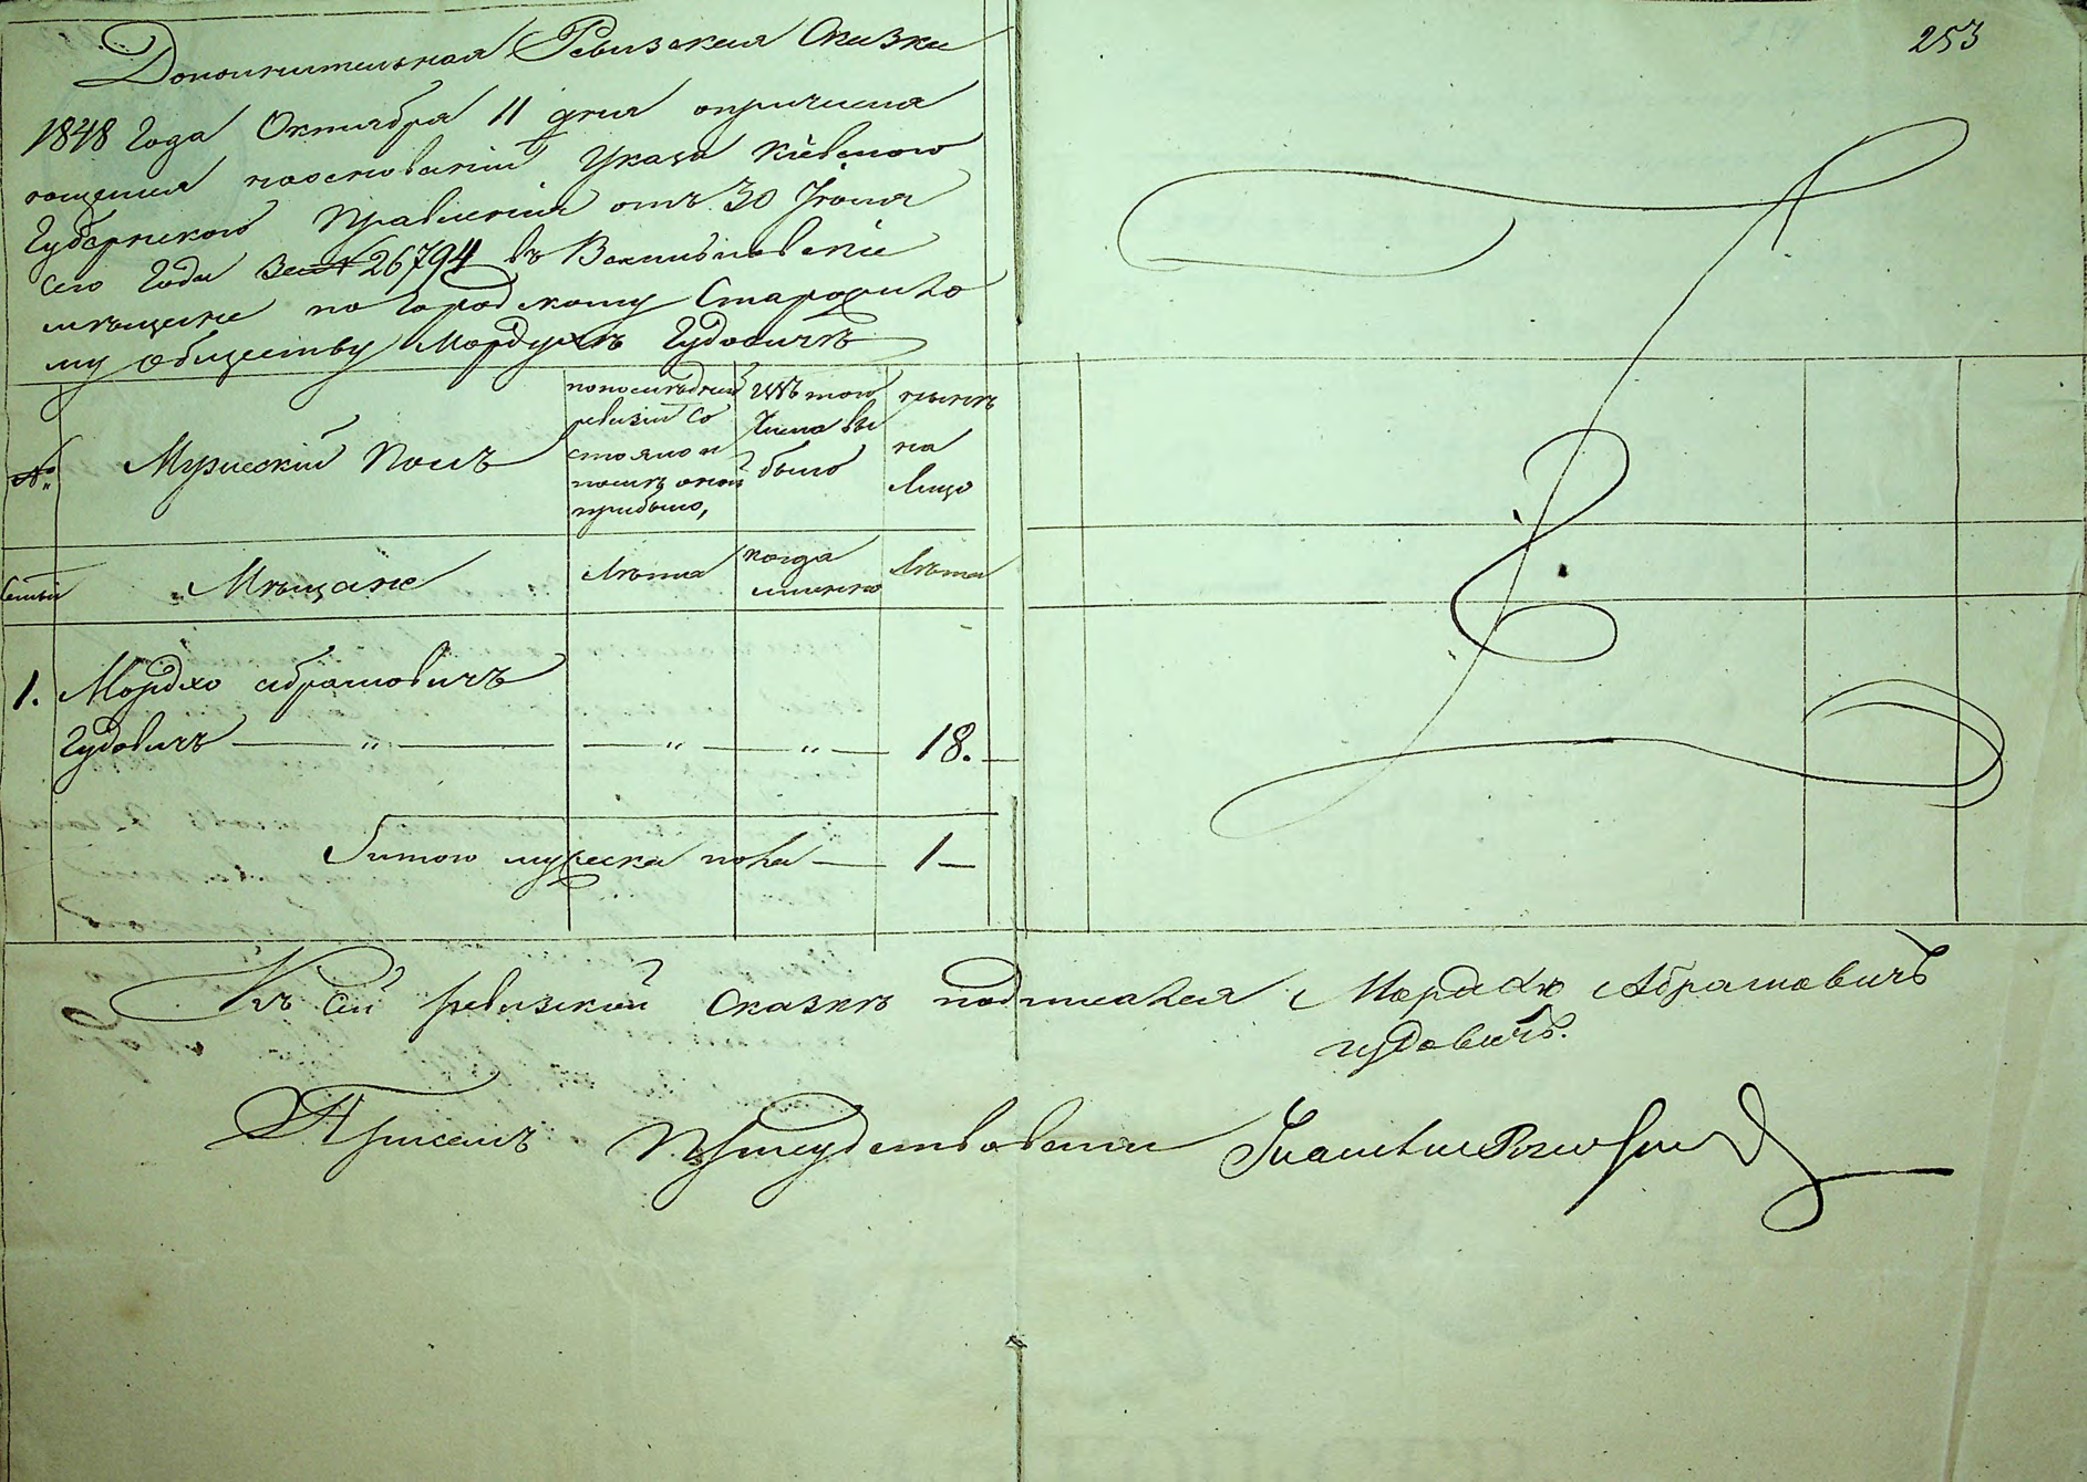 253
Дополнительная Ревизская Сказка
1848 Года Октября 11 дня опричисле
ющемся наосновании Указа Кіевского
Губернского Правленія отъ 30 Іюня
сего Года за № 26794 въ Васильковскіе
мѣщане по городскому Старожило
му обществу Мордухъ Гудовичъ
№
Мужескій полъ
попослѣдней
ревизіи со
стояло и
послѣ оной
прибыло,
Изъ того
числа вы
было
нынѣ
на
лицо
Семьи
Мѣщане
Лѣта
когда
именно
Лѣта
1. Мордхо Абрамовичъ
Гудовичъ — „ — — „ — „ — 18.
Итого мужеска пола — 1 —
Къ сей ревизской сказкѣ подписался Мордхо Абрамовичъ
Гудовичъ.